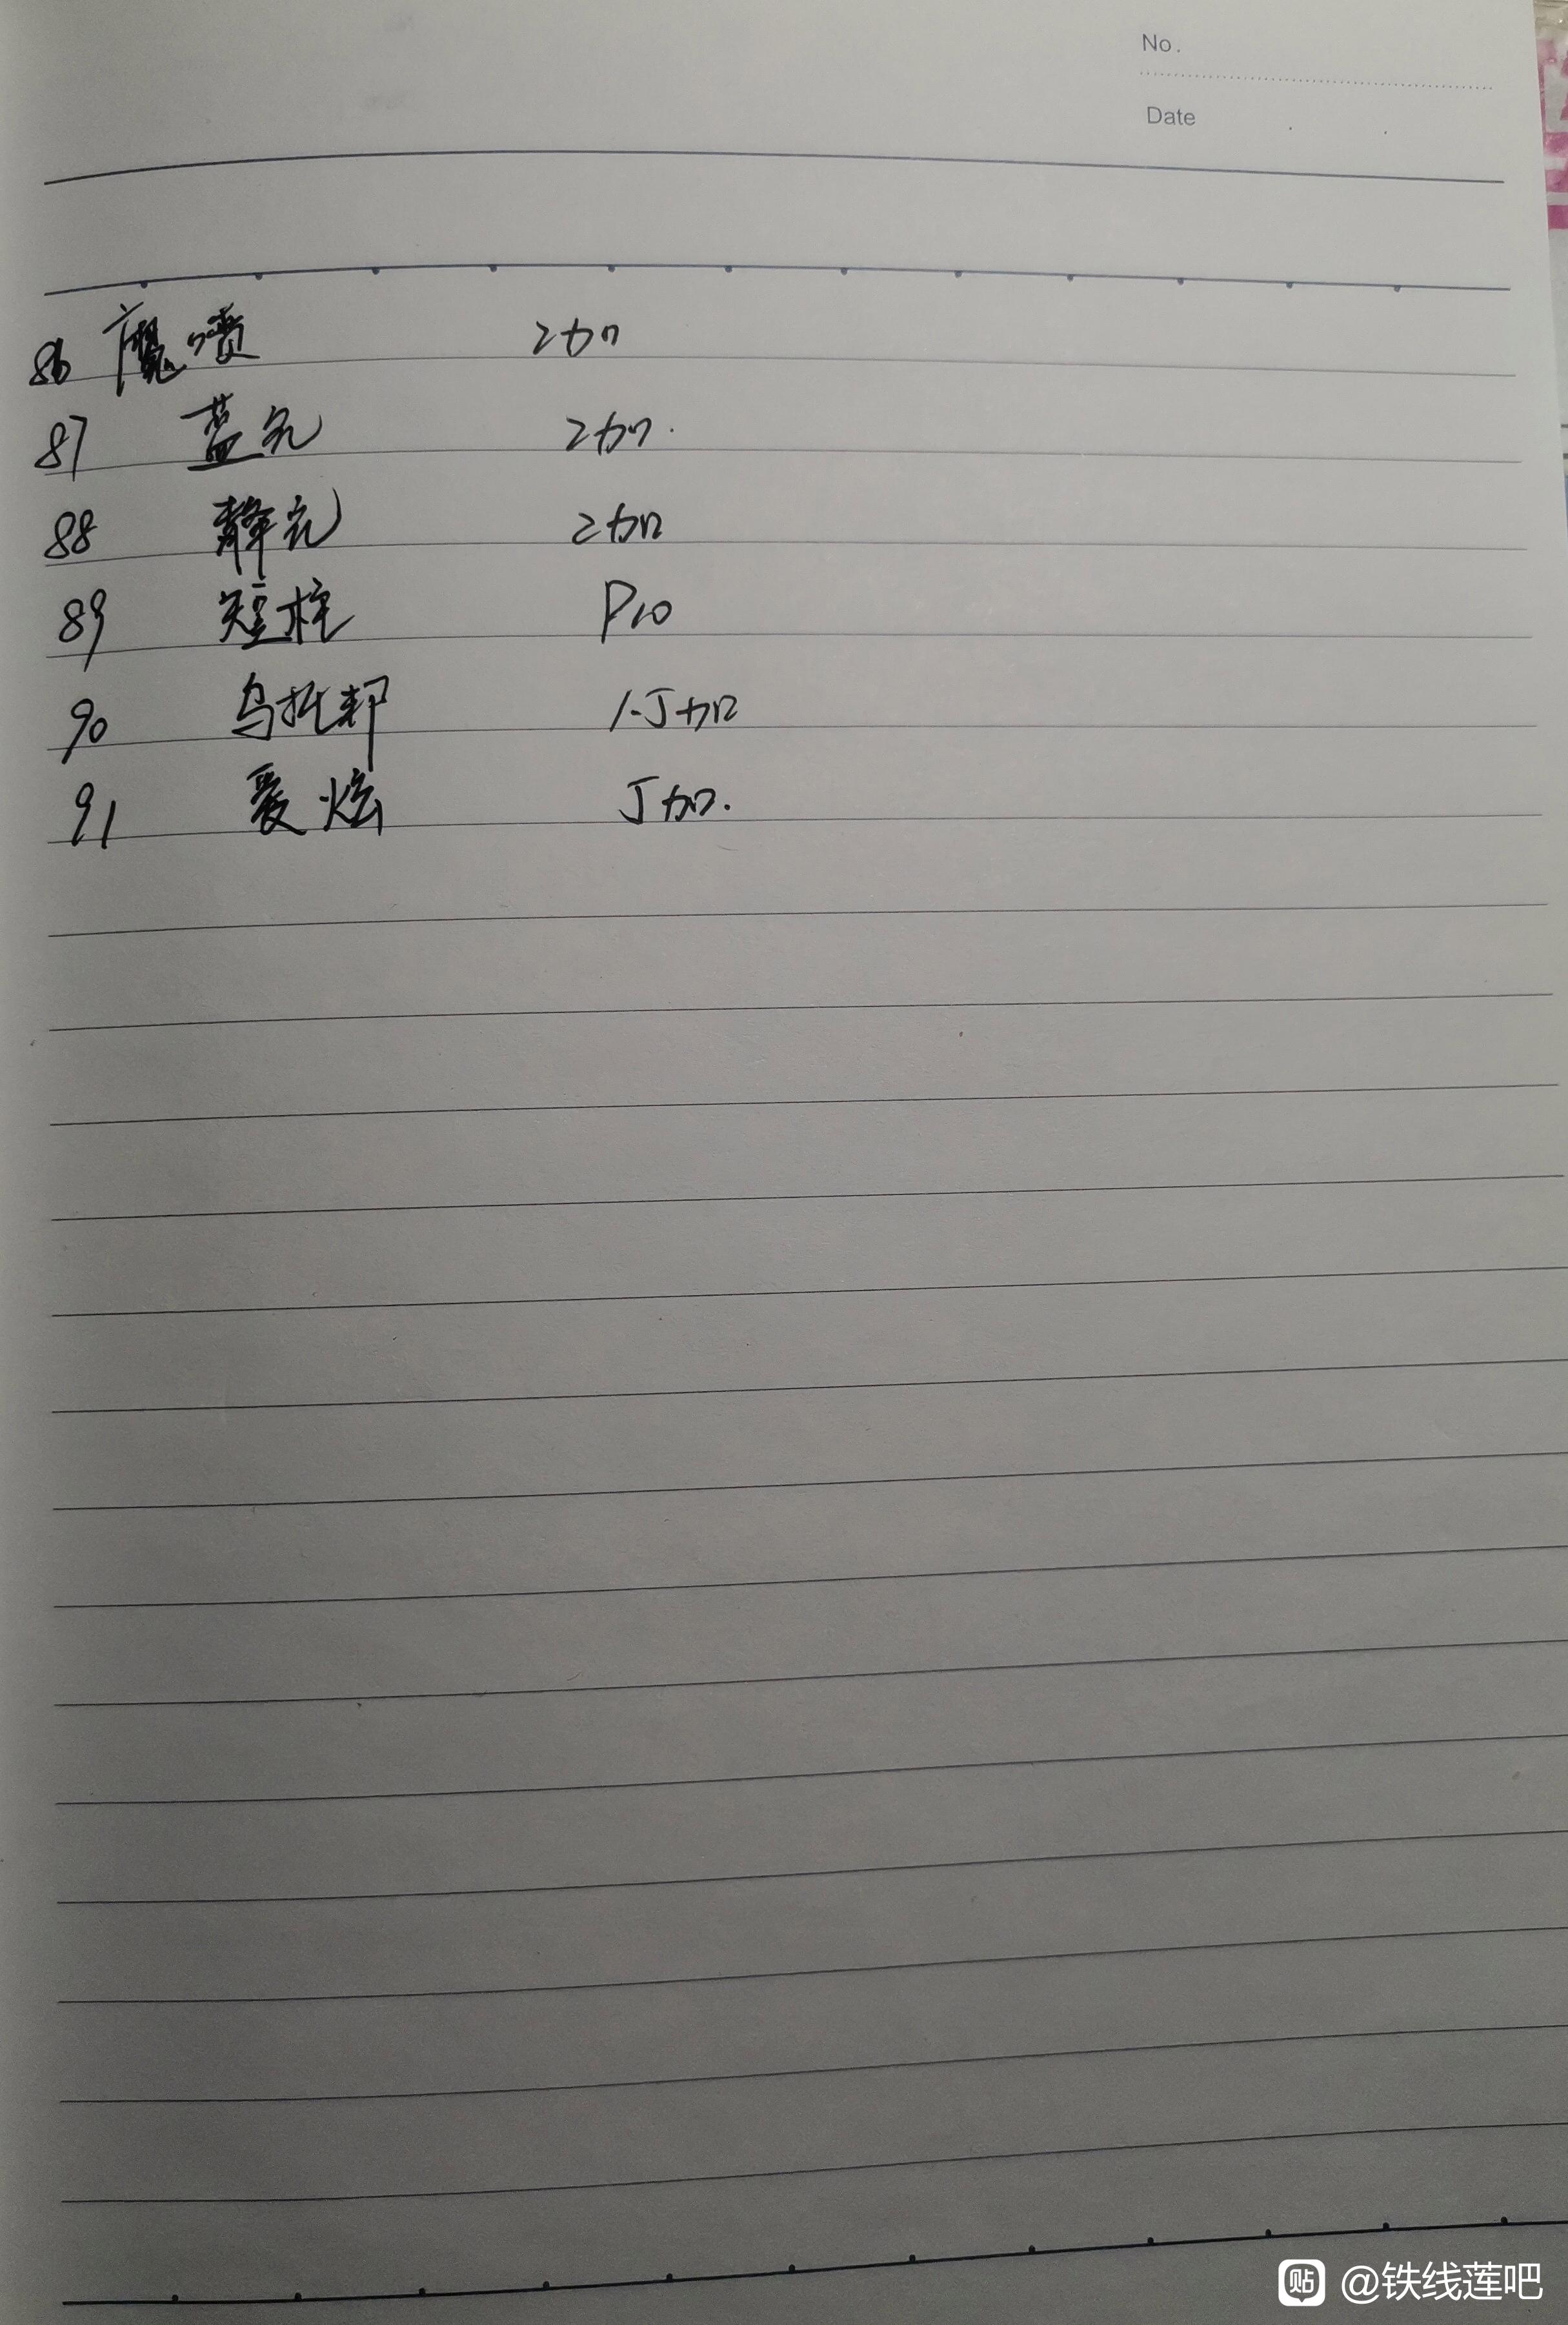 No.
Date
86 魔喷 2加
87 蓝光 2加.
88 静光 2加
89 短柱 P10
90 乌托邦 1.J加
91 爱炫 J加.
贴 @铁线莲吧